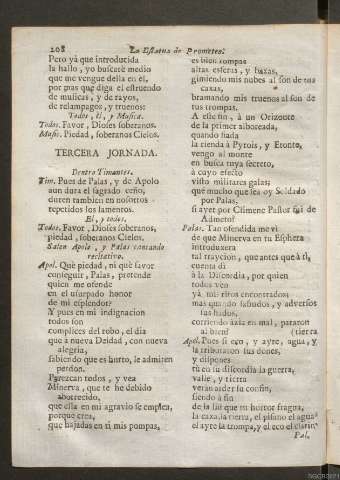 208 La Estatua de Prometeo.
Pero yà que introducida
la hallo, yo buscarè medio
que me vengue della en èl,
por mas que diga el estruendo
de musicas, y de rayos,
de relampagos, y truenos:
Todos, El, y Musica.
Todos. Favor, Dioses soberanos.
Music. Piedad, soberanos Cielos.
TERCERA JORNADA.
Dentro Timantes.
Tim. Pues de Palas, y de Apolo
aun dura el sagrado ceño,
duren tambien en nosotros
repetidos los lamentos.
El, y todos.
Todos. Favor, Dioses soberanos,
piedad, soberanos Cielos.
Salen Apolo, y Palas cantando
recitativo.
Apol. Què piedad, ni què favor
conseguir, Palas, pretende
quien me ofende
en el usurpado honor
de mi esplendor?
Y pues en mi indignacion
todos son
complices del robo, el dia
que à nueva Deidad, con nueva
alegria,
sabiendo que es hurto, le admiten
perdon.
Parezcan todos, y vea
Minerva, que te he debido
aborrecido,
que ella en mi agravio se emplea,
porque crea,
que bajadas en ti mis pompas,
es bien rompas
altas esferas, y baxas,
gimiendo mis nubes al son de tus
caxas,
bramando mis truenos al son de
tus trompas.
A este fin, à un Orizonte
de la primer alboreada,
quando fiada
la rienda à Pytois, y Etonte,
vengo al monte
en busca tuya secreto,
à cuyo efecto
visto militares galas;
què mucho que sea oy Soldado
por Palas,
si ayer por Climene Pastor fui de
Admeto?
Palas. Tan ofendida me vi
de que Minerva en tu Esphera
introduxera
tal traycion, que antes que à ti,
cuenta di
à la Discordia, por quien
todos ven
yà mis iras encontrados;
mas quando sañudos, y adversos
sus hados,
corriendo àzia en mal, pararon
al bien? (tierra
Apol. Pues si eco, y ayre, agua, y
la tributaron sus dones,
y dispones
tù en su discordia la guerra,
valle, y tierra
veràn arder su confin,
siendo à fin
de la lid que tu horror fragua,
la caxa, la tierra, el pifano el agua
el ayre la trompa, y el eco el clarin.
Pal.